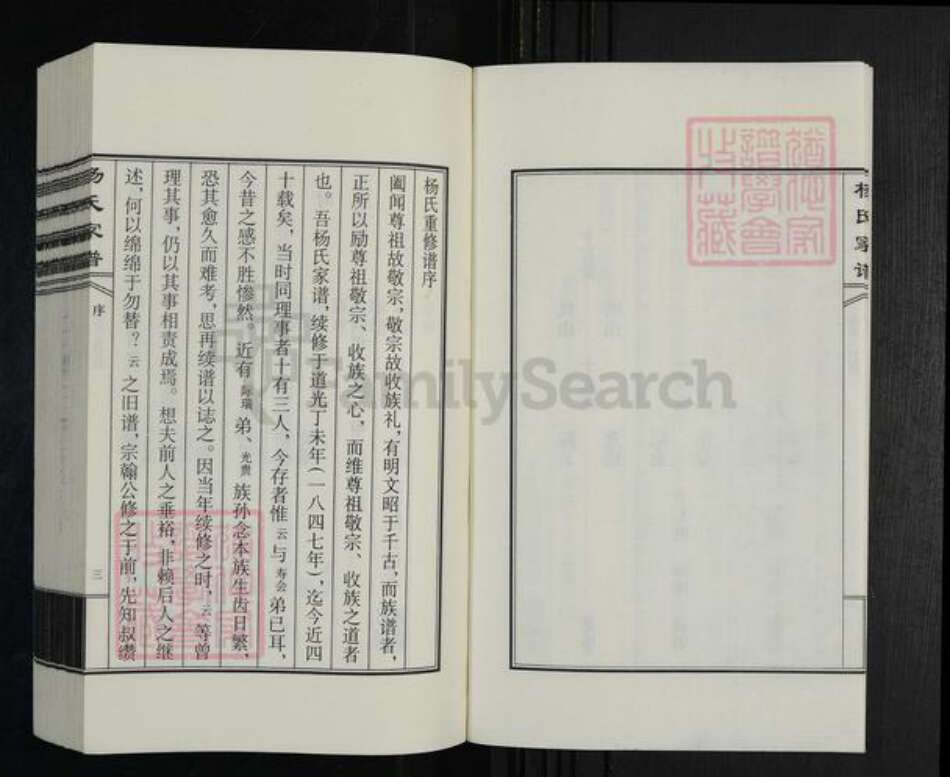 杨氏重修谱序
阖闻尊祖故敬宗，敬宗故收族礼，有明文昭于千古，而族谱者，
正所以励尊祖敬宗、收族之心，而维尊祖敬宗、收族之道者
也。吾杨氏家谱，续修于道光丁未年（一八四七年），迄今近四
十载矣，当时同理事者十有三人，今存者惟云与寿会弟已耳，
今昔之感不胜惨然。近有际瑞弟、光贵族孙念本族生齿日繁，
恐其愈久而难考，思再续谱以志之。因当年续修之时，云等曾
理其事，仍以其事相责成焉。想夫前人之垂裕，非赖后人之继
述，何以绵绵于勿替？云之旧谱，宗翰公修之于前，先知叔缵
杨氏家谱
序
三
杨氏家谱
FamilySearch